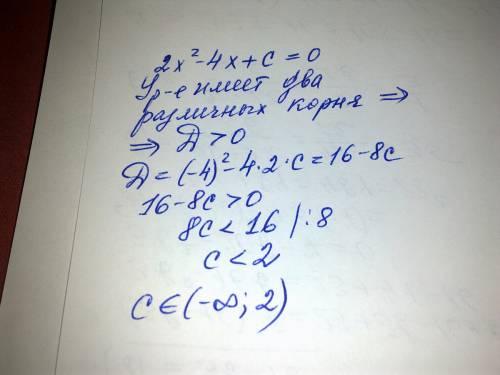 2x²-4x+c=0
Ур-е имеет два
различных корня ⇒
⇒ Д>0
Д=(-4)²-4·2·c=16-8c
16-8c>0
8c<16 |:8
c<2
c∈(-∞; 2)